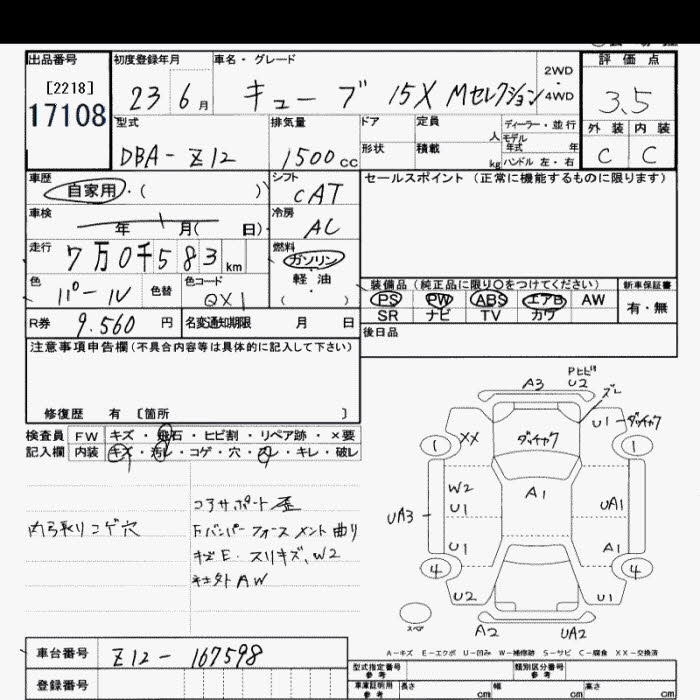 出品番号
[2218]
17108
初度登録年月
23 6月
車名・グレード
キューブ 15X Mセレクション
2WD
・
4WD
評価点
3.5
外装 内装
C C
型式
DBA-Z12
排気量
1500cc
ドア
定員
人
形状
積載
kg
ディーラー・並行
モデル
年式 年
ハンドル 左・右
車歴
自家用・( )
シフト
CAT
セールスポイント (正常に機能するものに限ります)
車検
年 月( 日)
冷房
AC
走行
7万0千583km
燃料
ガソリン
・
軽油
・
( )
色
パール
色替
色コード
QX1
装備品 (純正品に限り〇をつけてください)
PS PW ABS エアB AW
SR ナビ TV カワ
新車保証書
有・無
R券
9.560円
名変通知期限 月 日
後日品
注意事項申告欄(不具合内容等は具体的に記入して下さい)
修復歴 有 〔箇所 〕
検査員
記入欄
FW キズ・飛石・ヒビ割・リペア跡・×要
内装 キズ・汚レ・コゲ・穴・スレ・キレ・破レ
内張リコゲ穴
コアサポート歪
Fバンパーフォースメント曲り
キズE.スリキズ、W2
社外AW
Pヒビ
A3 U2
ズレ
U1-ダツイカク
1 XX 1
A1
W2
U1
UA3
UA1
U1
A1
4 4
U2 U1
スペア
A2 UA2
A-キズ E-エクボ U-凹み W-補修跡 S-サビ C-腐食 XX-交換済
車台番号
Z12-167598
登録番号
型式指定番号
参考
類別区分番号
参考
車庫証明用
参考
長さ cm
幅 cm
高さ cm